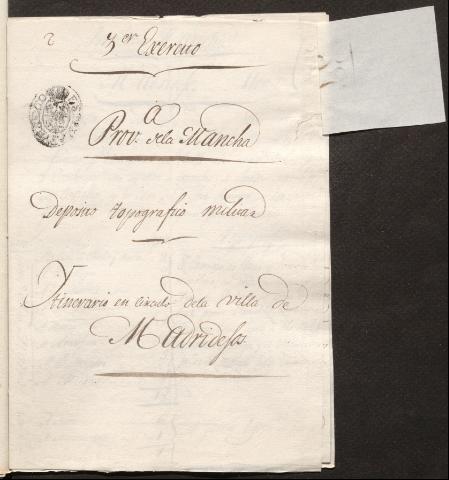 2
3er Exercito
Prov.a dela Mancha
Deposito topografico militar
Ytinerario en circulo dela villa de
Madridejos